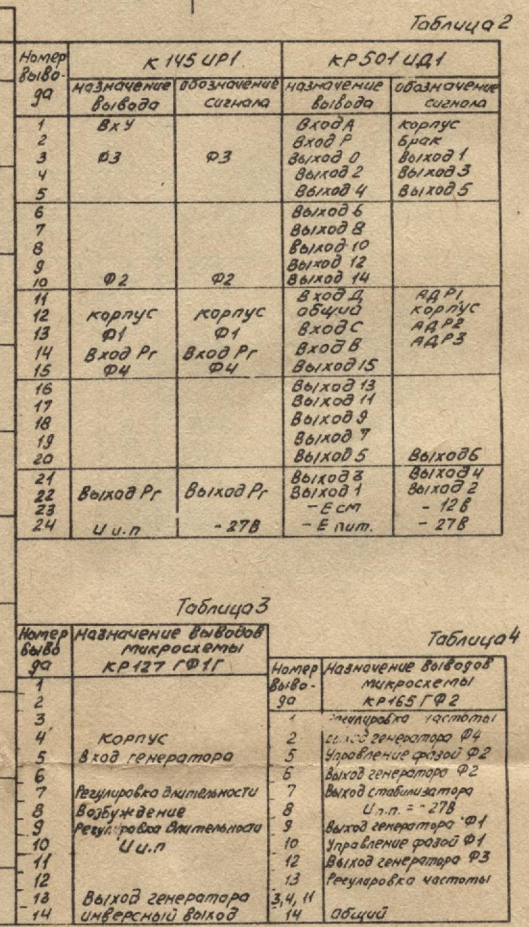 Таблица 2
Номер выво-да | К 145 ИР1 | КР501 ИД1
назначение вывода | обозначение сигнала | назначение вывода | обозначение сигнала
1 Вх У Вход А корпус
2 Вход Р Брак
3 Ф3 Ф3 Выход 0 Выход 1
4 Выход 2 Выход 3
5 Выход 4 Выход 5
6 Выход 6
7 Выход 8
8 Выход 10
9 Выход 12
10 Ф2 Ф2 Выход 14
11 Вход Д АДР1
12 корпус корпус общий корпус
13 Ф1 Ф1 Вход С АДР2
14 Вход Рг Вход Рг Вход В АДР3
15 Ф4 Ф4 Выход 15
16 Выход 13
17 Выход 11
18 Выход 9
19 Выход 7
20 Выход 5 Выход 6
21 Выход 3 Выход 4
22 Выход Рг Выход Рг Выход 1 Выход 2
23 - Е см - 12В
24 U и.п - 27В - Е пит. - 27В
Таблица 3
Номер выво да | Назначение выводов микросхемы КР127 ГФ1Г
1
2
3
4 корпус
5 Вход генератора
6
7 Регулировка длительности
8 Возбуждение
9 Регулировка длительности
10 U и.п
11
12
13 Выход генератора
14 инверсный выход
Таблица 4
Номер выво-да | Назначение выводов микросхемы КР165 ГФ2
1 Регулировка частоты
2 Выход генератора Ф4
5 Управление фазой Ф2
6 Выход генератора Ф2
7 Выход стабилизатора
8 U п.п. = - 27В
9 Выход генератора Ф1
10 Управление фазой Ф1
12 Выход генератора Ф3
13 Регулировка частоты
3,4, 11
14 Общий